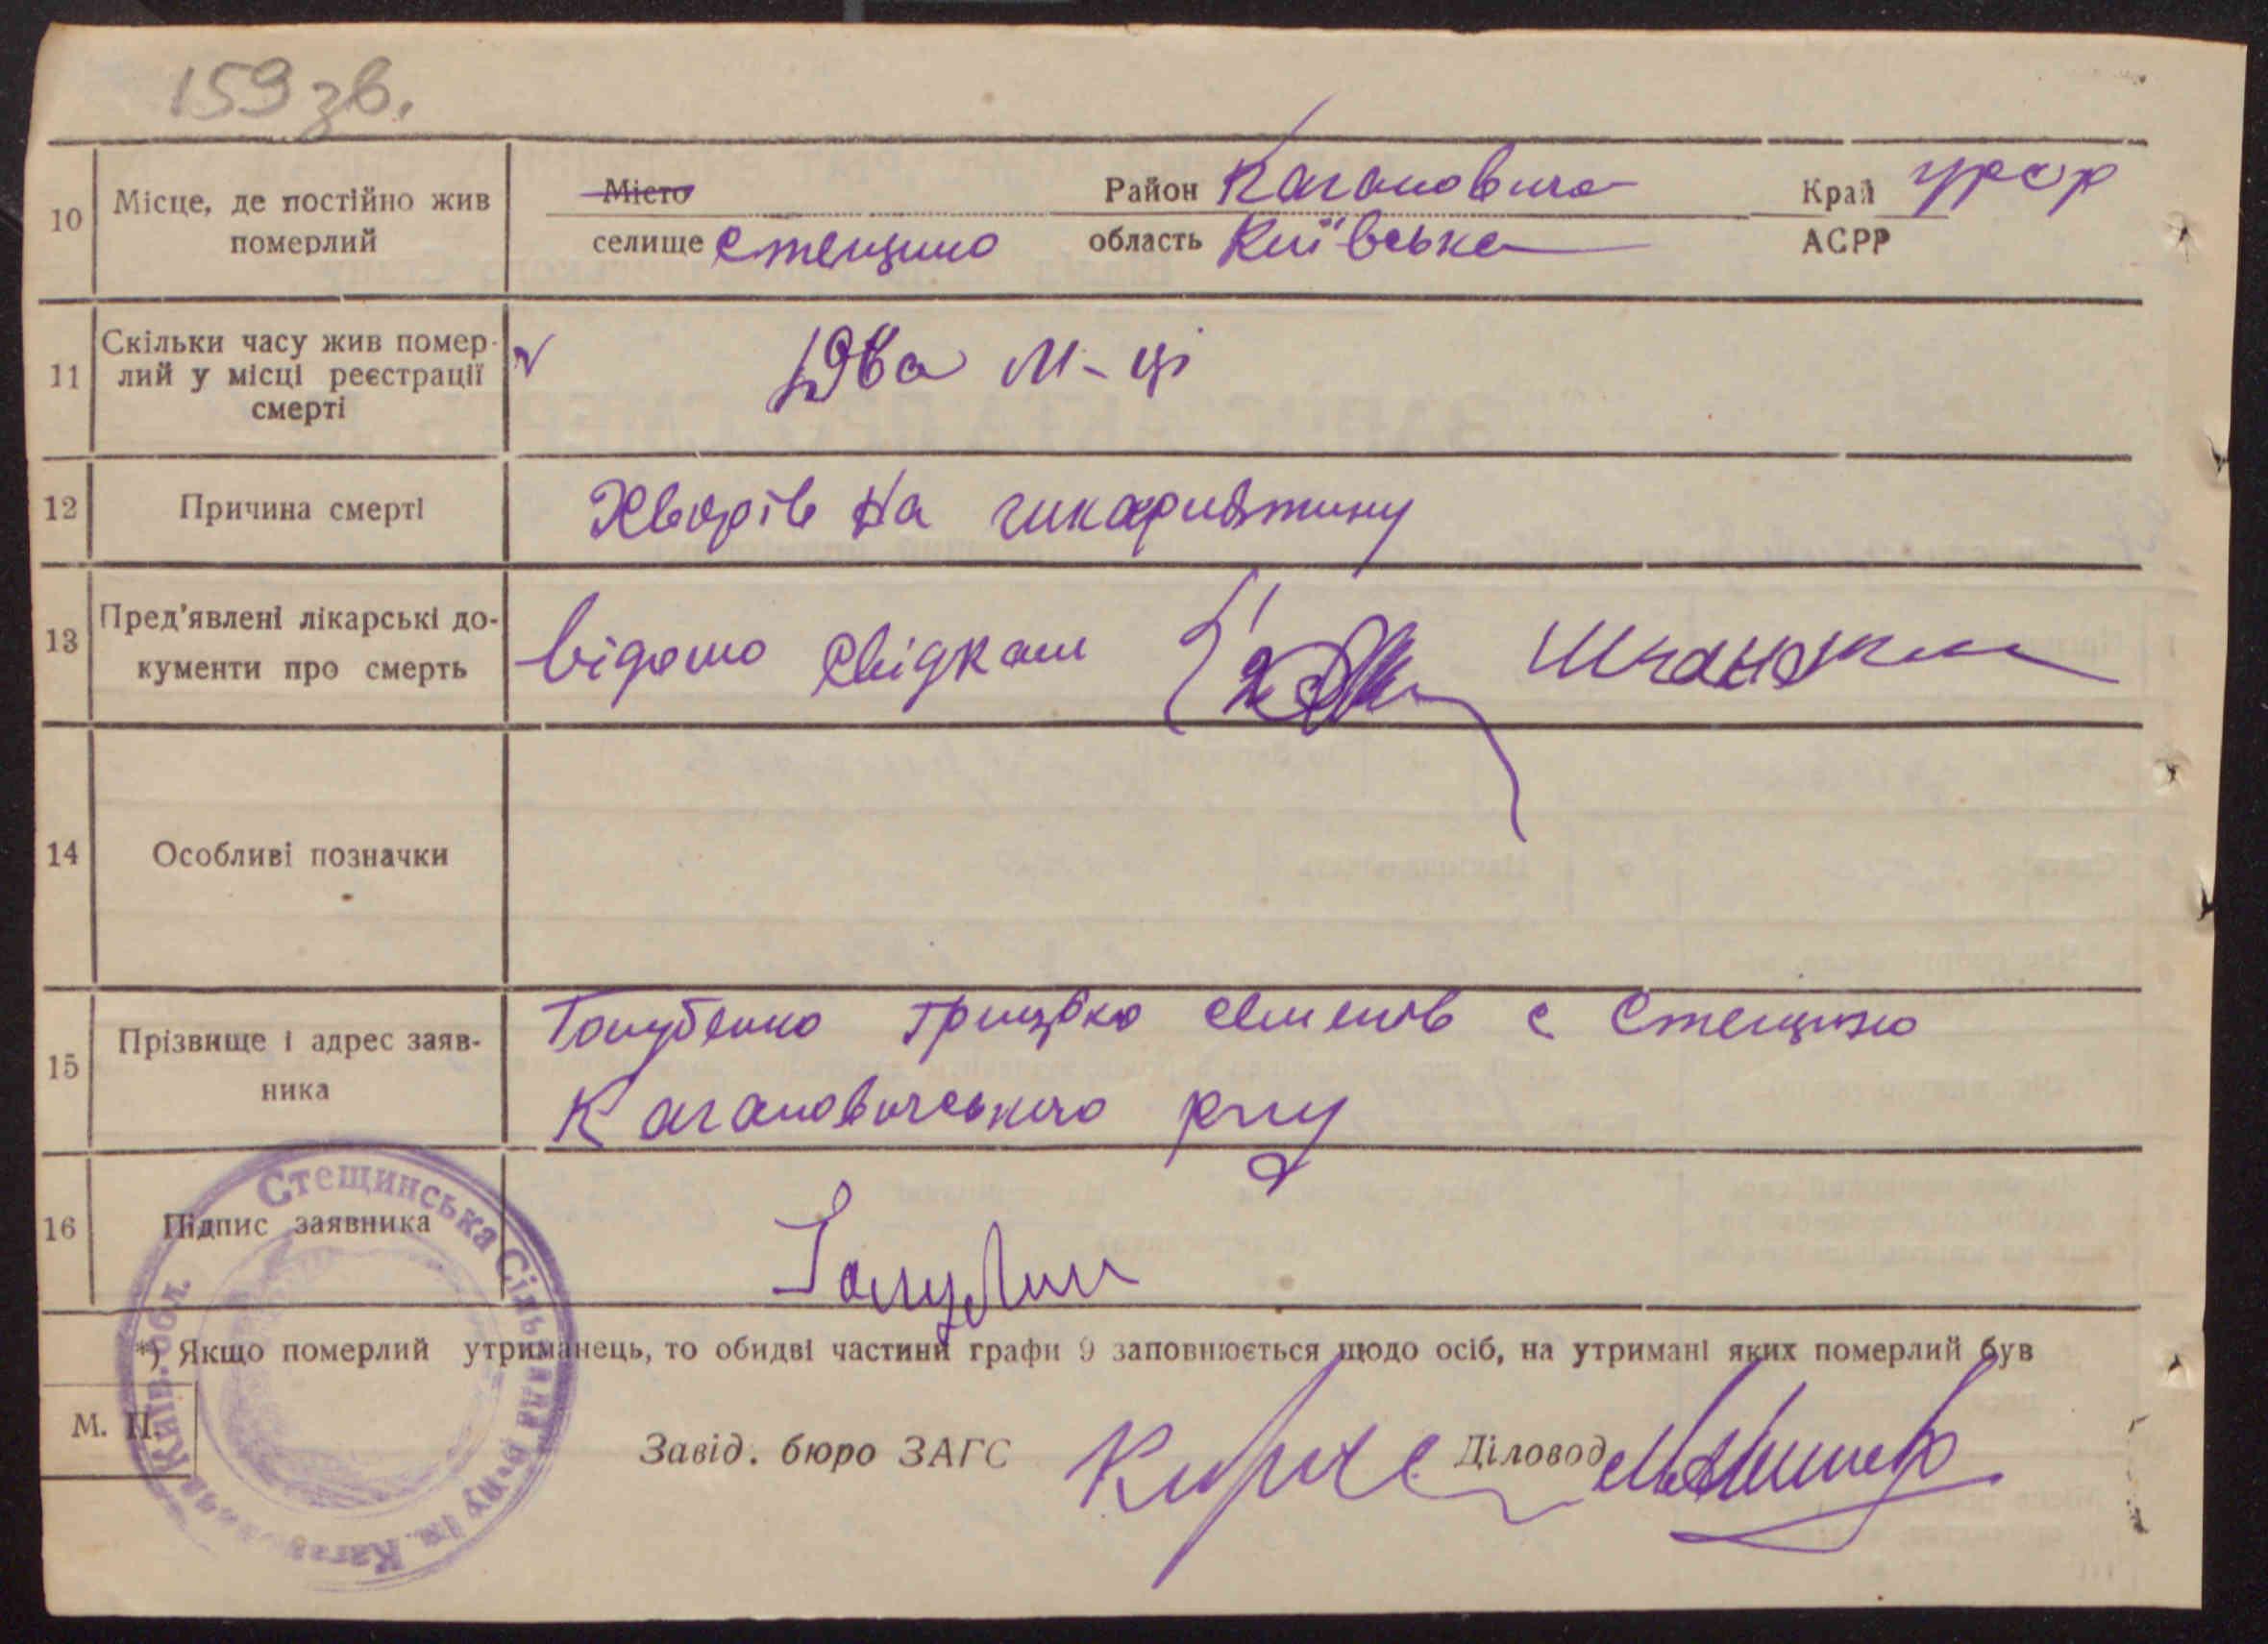 159 зв.
10 Місце, де постійно жив померлий
Місто Район Кагановича Край УРСР
селище Стещино область Київська АСРР
11 Скільки часу жив помер-
лий у місці реєстрації
смерті
Два м-ці
12 Причина смерті Хворів на
13 Пред'явлені лікарські до-
кументи про смерть
відомо свідкам
14 Особливі позначки
15 Прізвище і адрес заяв-
ника
Голубенко Грицько Семенів с Стещино
Кагановичського р-ну
16 Підпис заявника
*) Якщо померлий утриманець, то обидві частини графи 9 заповнюється щодо осіб, на утримані яких померлий був
М. П.
Завід. бюро ЗАГС Діловод
Стещинська Сільрада р-ну ім. Кагановича Київ. обл.